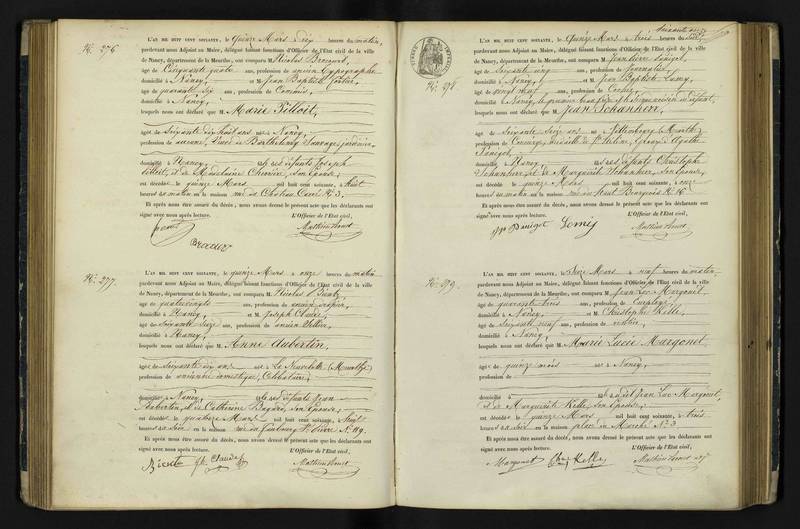 N° 276
L'AN MIL HUIT CENT SOIXANTE, le quinze Mars à dix heures du matin,
pardevant nous Adjoint au Maire, délégué faisant fonctions d'Officier de l'État civil de la ville
de Nancy, département de la Meurthe, ont comparu M. Nicolas
âgé de Cinquante quatre ans, profession de ancien typographe
domicilié à Nancy, et M. Jean Baptiste
âgé de quarante six ans, profession de Commis,
domicilié à Nancy,
lesquels nous ont déclaré que Marie Pilloit,
âgée de soixante dix huit ans née à Nancy,
profession de veuve de Barthelemy Sauvage, jardinier,
domiciliée à Nancy, des défunts Joseph
Pilloit, et de Madelaine son épouse,
est décédée le quinze Mars mil huit cent soixante, à huit
heures du matin en la maison rue du N° 3,
Et après nous être assuré du décès, nous avons dressé le présent acte que les déclarants ont
signé avec nous après lecture. L'Officier de l'État civil,
N° 277
L'AN MIL HUIT CENT SOIXANTE, le quinze Mars à onze heures du matin
pardevant nous Adjoint au Maire, délégué faisant fonctions d'Officier de l'État civil de la ville
de Nancy, département de la Meurthe, ont comparu M. Nicolas
âgé de quatre vingt ans, profession de ancien
domicilié à Nancy, et M. Joseph Claude,
âgé de soixante seize ans, profession de ancien sellier,
domicilié à Nancy,
lesquels nous ont déclaré que M. Anne Aubertin,
âgée de soixante dix ans née à La Neuvelotte (Meurthe)
profession de ancienne domestique, Célibataire,
domiciliée à Nancy, des défunts Jean
Aubertin, et de Catherine son épouse,
est décédée le quatorze Mars mil huit cent soixante, à huit
heures du soir en la maison rue du faubourg St Pierre N° 119.
Et après nous être assuré du décès, nous avons dressé le présent acte que les déclarants ont
signé avec nous après lecture. L'Officier de l'État civil,
N° 278
L'AN MIL HUIT CENT SOIXANTE, le quinze Mars à trois heures du soir,
pardevant nous Adjoint au Maire, délégué faisant fonctions d'Officier de l'État civil de la ville
de Nancy, département de la Meurthe, ont comparu M. Jean Pierre
âgé de soixante cinq ans, profession de Journalier,
domicilié à Nancy, et M. Baptiste
âgé de vingt neuf ans, profession de Cocher,
domicilié à Nancy,
lesquels nous ont déclaré que M. Jean Schanher,
âgé de soixante seize ans né à (Meurthe)
profession de médaillé de Ste Hélène, époux d'Agathe
domicilié à Nancy, des défunts Christophe
Schanher, et de Marguerite son épouse,
est décédé le quinze Mars mil huit cent soixante, à onze
heures du matin en la maison rue du haut Bourgeois N° 16
Et après nous être assuré du décès, nous avons dressé le présent acte que les déclarants ont
signé avec nous après lecture. L'Officier de l'État civil,
N° 279.
L'AN MIL HUIT CENT SOIXANTE, le seize Mars à neuf heures du matin,
pardevant nous Adjoint au Maire, délégué faisant fonctions d'Officier de l'État civil de la ville
de Nancy, département de la Meurthe, ont comparu M. Jean Luc Margonet,
âgé de quarante trois ans, profession de Employé,
domicilié à Nancy, et M. Christophe Kelle,
âgé de soixante neuf ans, profession de rentier,
domicilié à Nancy,
lesquels nous ont déclaré que Marie Lucie Margonet
âgée de quinze mois née à Nancy,
profession de
domiciliée à de Jean Luc Margonet,
et de Marguerite Kelle, son épouse,
est décédée le quinze Mars mil huit cent soixante, à trois
heures du soir en la maison place du Marché N° 3
Et après nous être assuré du décès, nous avons dressé le présent acte que les déclarants ont
signé avec nous après lecture. L'Officier de l'État civil,
Margonet Kelle